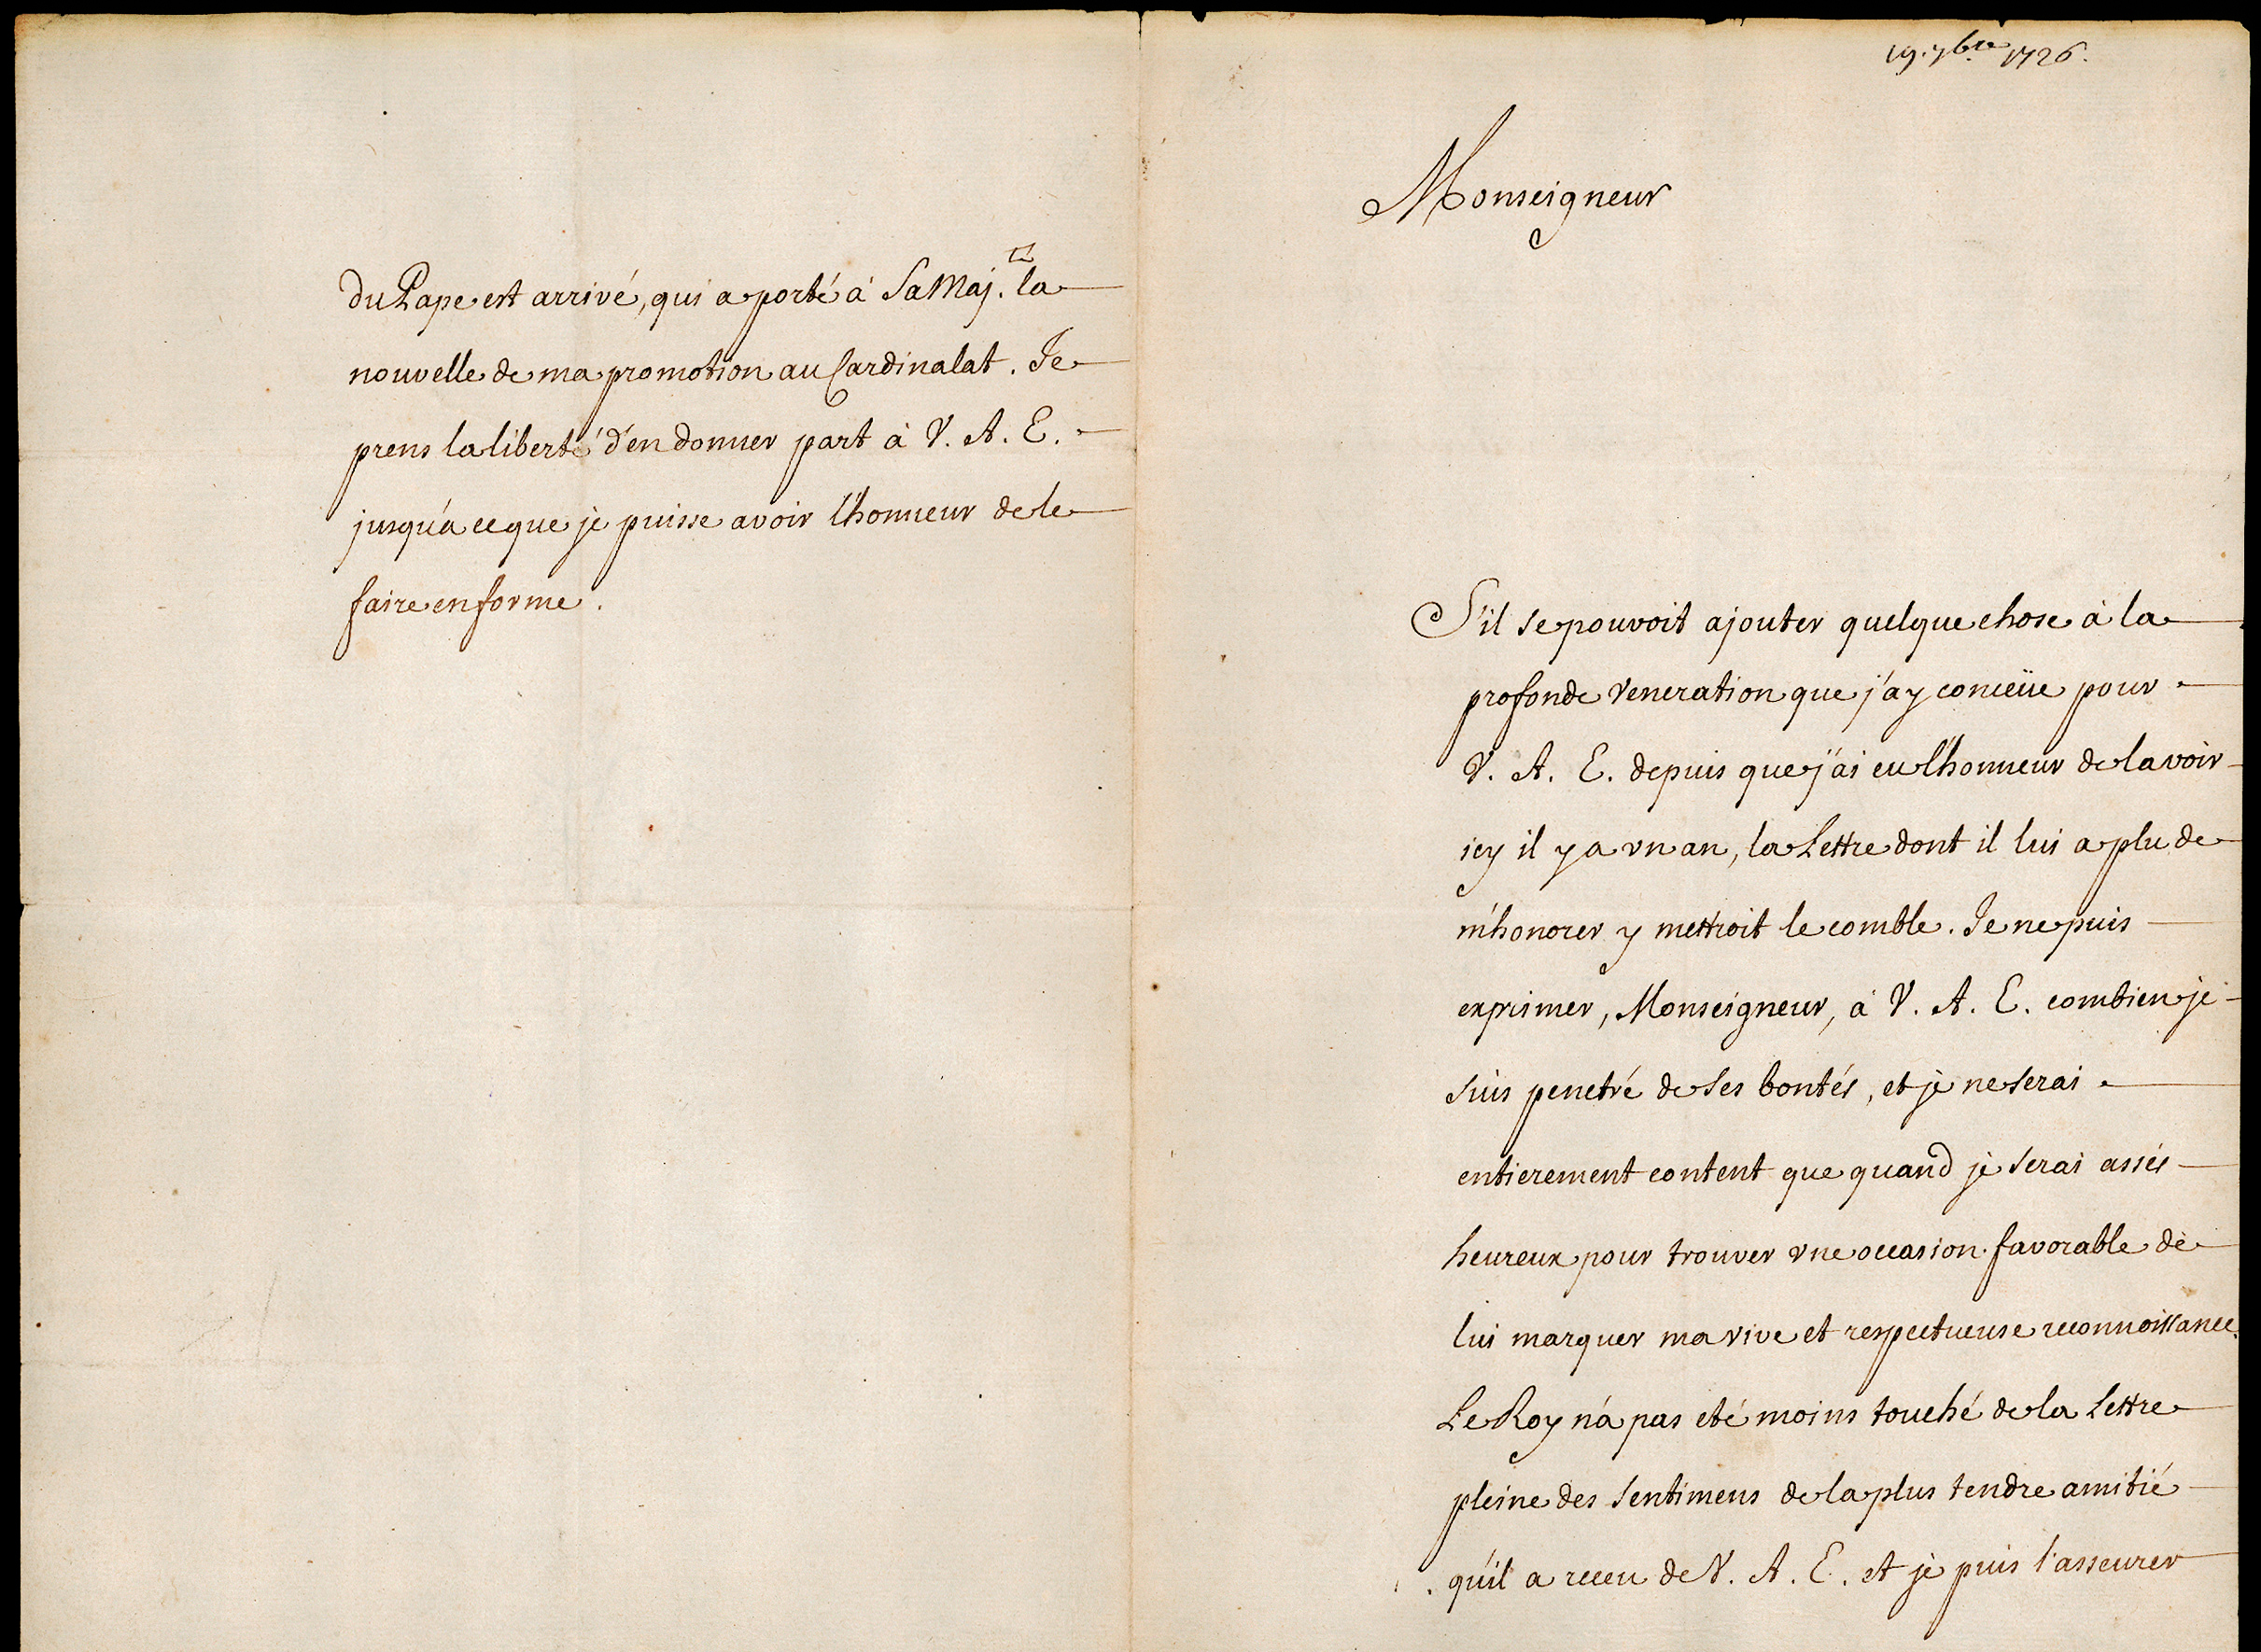 du Pape est arrivé, qui a porté à Sa Maj.té la
nouvelle de ma promotion au Cardinalat. Je
prens la liberté d'en donner part à V. A. E.
jusqu'a ce que je puisse avoir l'honneur de le
faire en forme.
19. 7bre 1726.
Monseigneur
S'il se pouvoit ajouter quelque chose à la
profonde veneration que j'ay conceüe pour
V. A. E. depuis que j'ai eu l'honneur de la voir
icy il y a vn an, la Lettre dont il lui a plu de
m'honorer y mettroit le comble. Je ne puis
exprimer, Monseigneur, à V. A. E. combien je
suis penetré de ses bontés, et je ne serai
entierement content que quand je serai assés
heureux pour trouver vne occasion favorable de
lui marquer ma vive et respectueuse reconnoissance.
Le Roy n'a pas eté moins touché de la Lettre
pleine des sentimens de la plus tendre amitié
qu'il a receu de V. A. E. et je puis l'asseurer